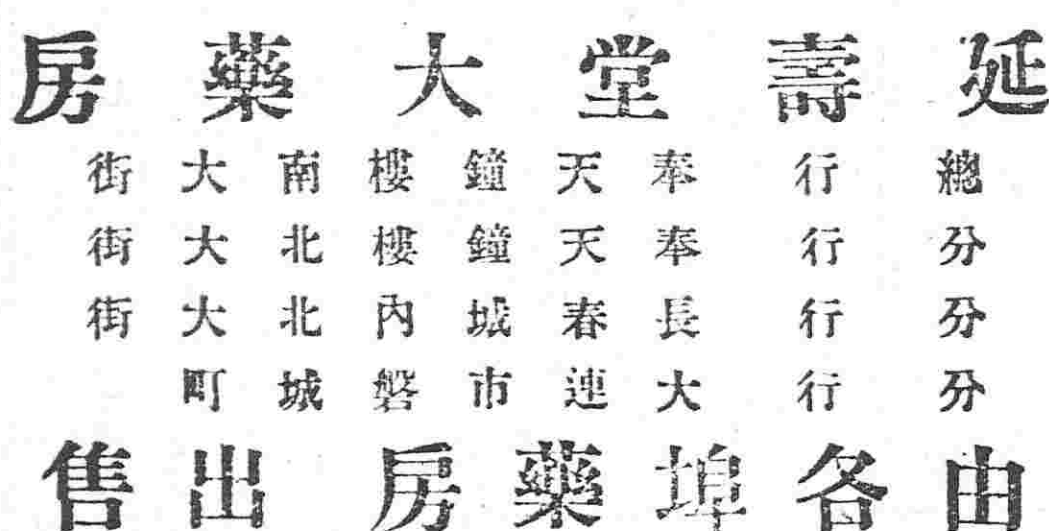 延壽堂大藥房
總行 奉天鐘樓南大街
分行 奉天鐘樓北大街
分行 長春城內北大街
分行 大連市磐城町
由各埠藥房出售